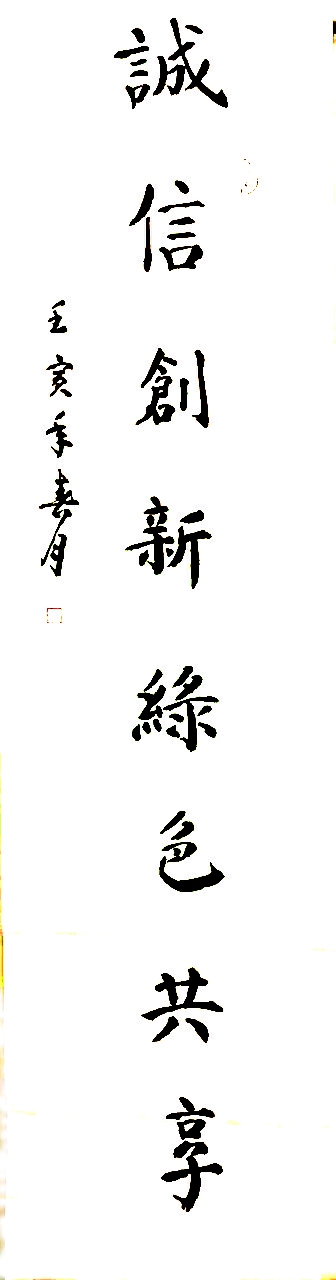 誠信創新綠色共享
壬寅年春月